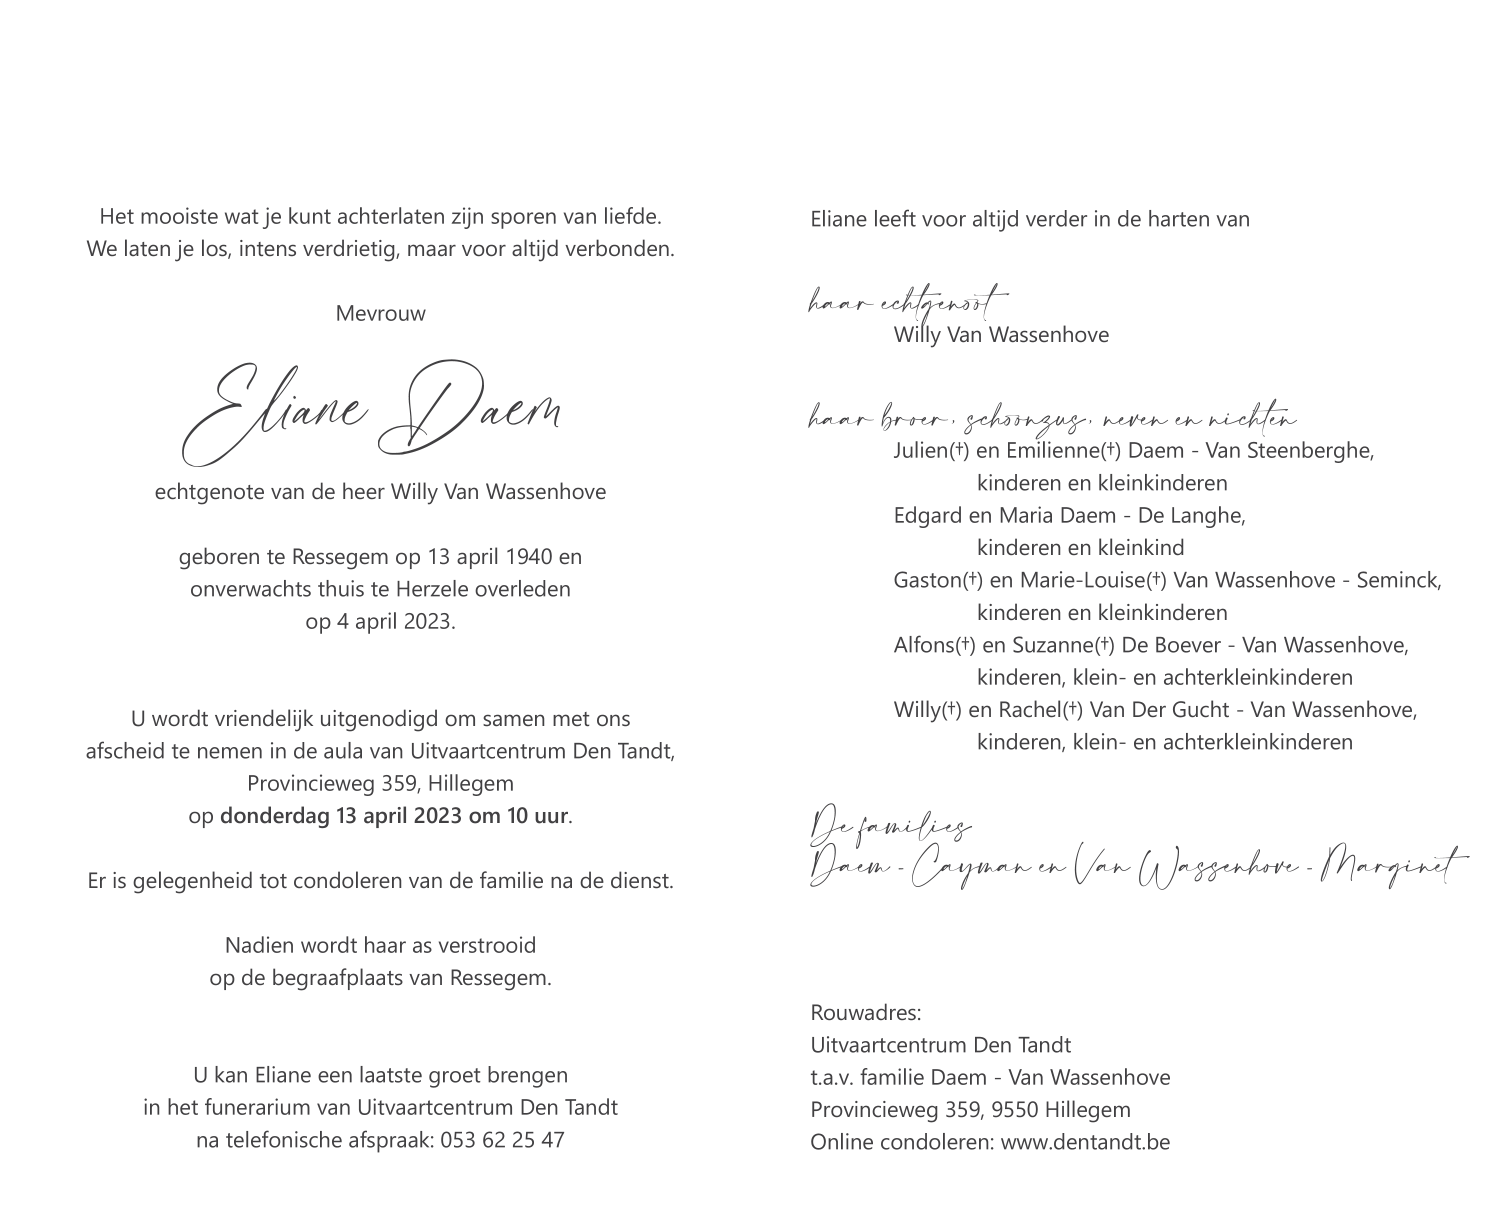 Het mooiste wat je kunt achterlaten zijn sporen van liefde.
We laten je los, intens verdrietig, maar voor altijd verbonden.
Mevrouw
Eliane Daem
echtgenote van de heer Willy Van Wassenhove
geboren te Ressegem op 13 april 1940 en
onverwachts thuis te Herzele overleden
op 4 april 2023.
U wordt vriendelijk uitgenodigd om samen met ons
afscheid te nemen in de aula van Uitvaartcentrum Den Tandt,
Provincieweg 359, Hillegem
op donderdag 13 april 2023 om 10 uur.
Er is gelegenheid tot condoleren van de familie na de dienst.
Nadien wordt haar as verstrooid
op de begraafplaats van Ressegem.
U kan Eliane een laatste groet brengen
in het funerarium van Uitvaartcentrum Den Tandt
na telefonische afspraak: 053 62 25 47
Eliane leeft voor altijd verder in de harten van
haar echtgenoot
Willy Van Wassenhove
haar broer, schoonzus, neven en nichten
Julien(†) en Emilienne(†) Daem - Van Steenberghe,
kinderen en kleinkinderen
Edgard en Maria Daem - De Langhe,
kinderen en kleinkind
Gaston(†) en Marie-Louise(†) Van Wassenhove - Seminck,
kinderen en kleinkinderen
Alfons(†) en Suzanne(†) De Boever - Van Wassenhove,
kinderen, klein- en achterkleinkinderen
Willy(†) en Rachel(†) Van Der Gucht - Van Wassenhove,
kinderen, klein- en achterkleinkinderen
De families
Daem - Cayman en Van Wassenhove - Marginet
Rouwadres:
Uitvaartcentrum Den Tandt
t.a.v. familie Daem - Van Wassenhove
Provincieweg 359, 9550 Hillegem
Online condoleren: www.dentandt.be